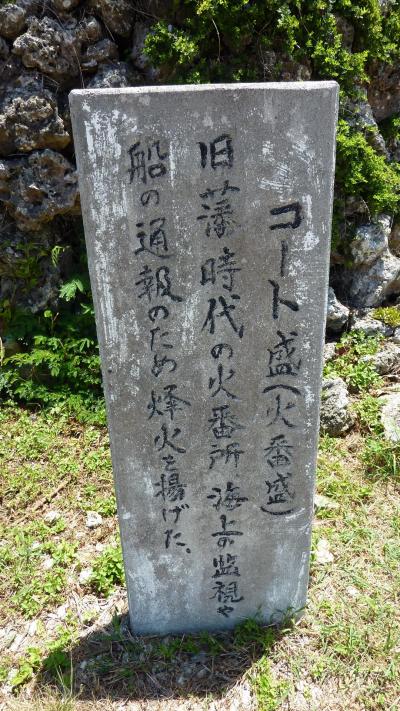 コート盛(火番盛)
旧藩時代の火番所海上の監視や
船の通報のため烽火を揚げた、